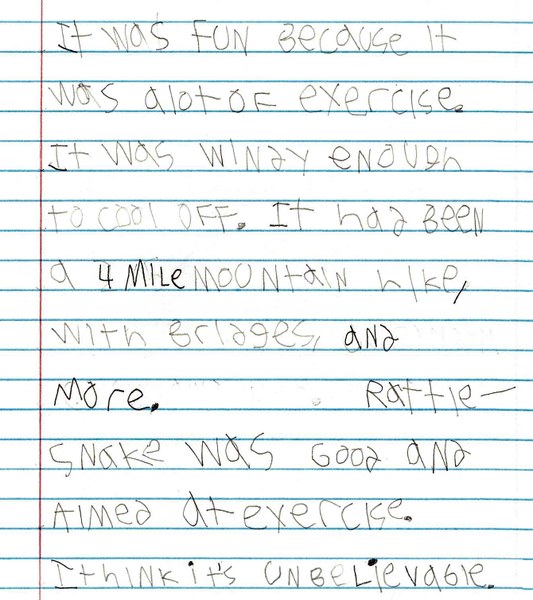 It was fun because it
was alot of exercise.
It was windy enough
to cool off. It had been
a 4 mile mountain hike,
with bridges, and
more. Rattle-
snake was good and
aimed at exercise.
I think it's unbelievable.